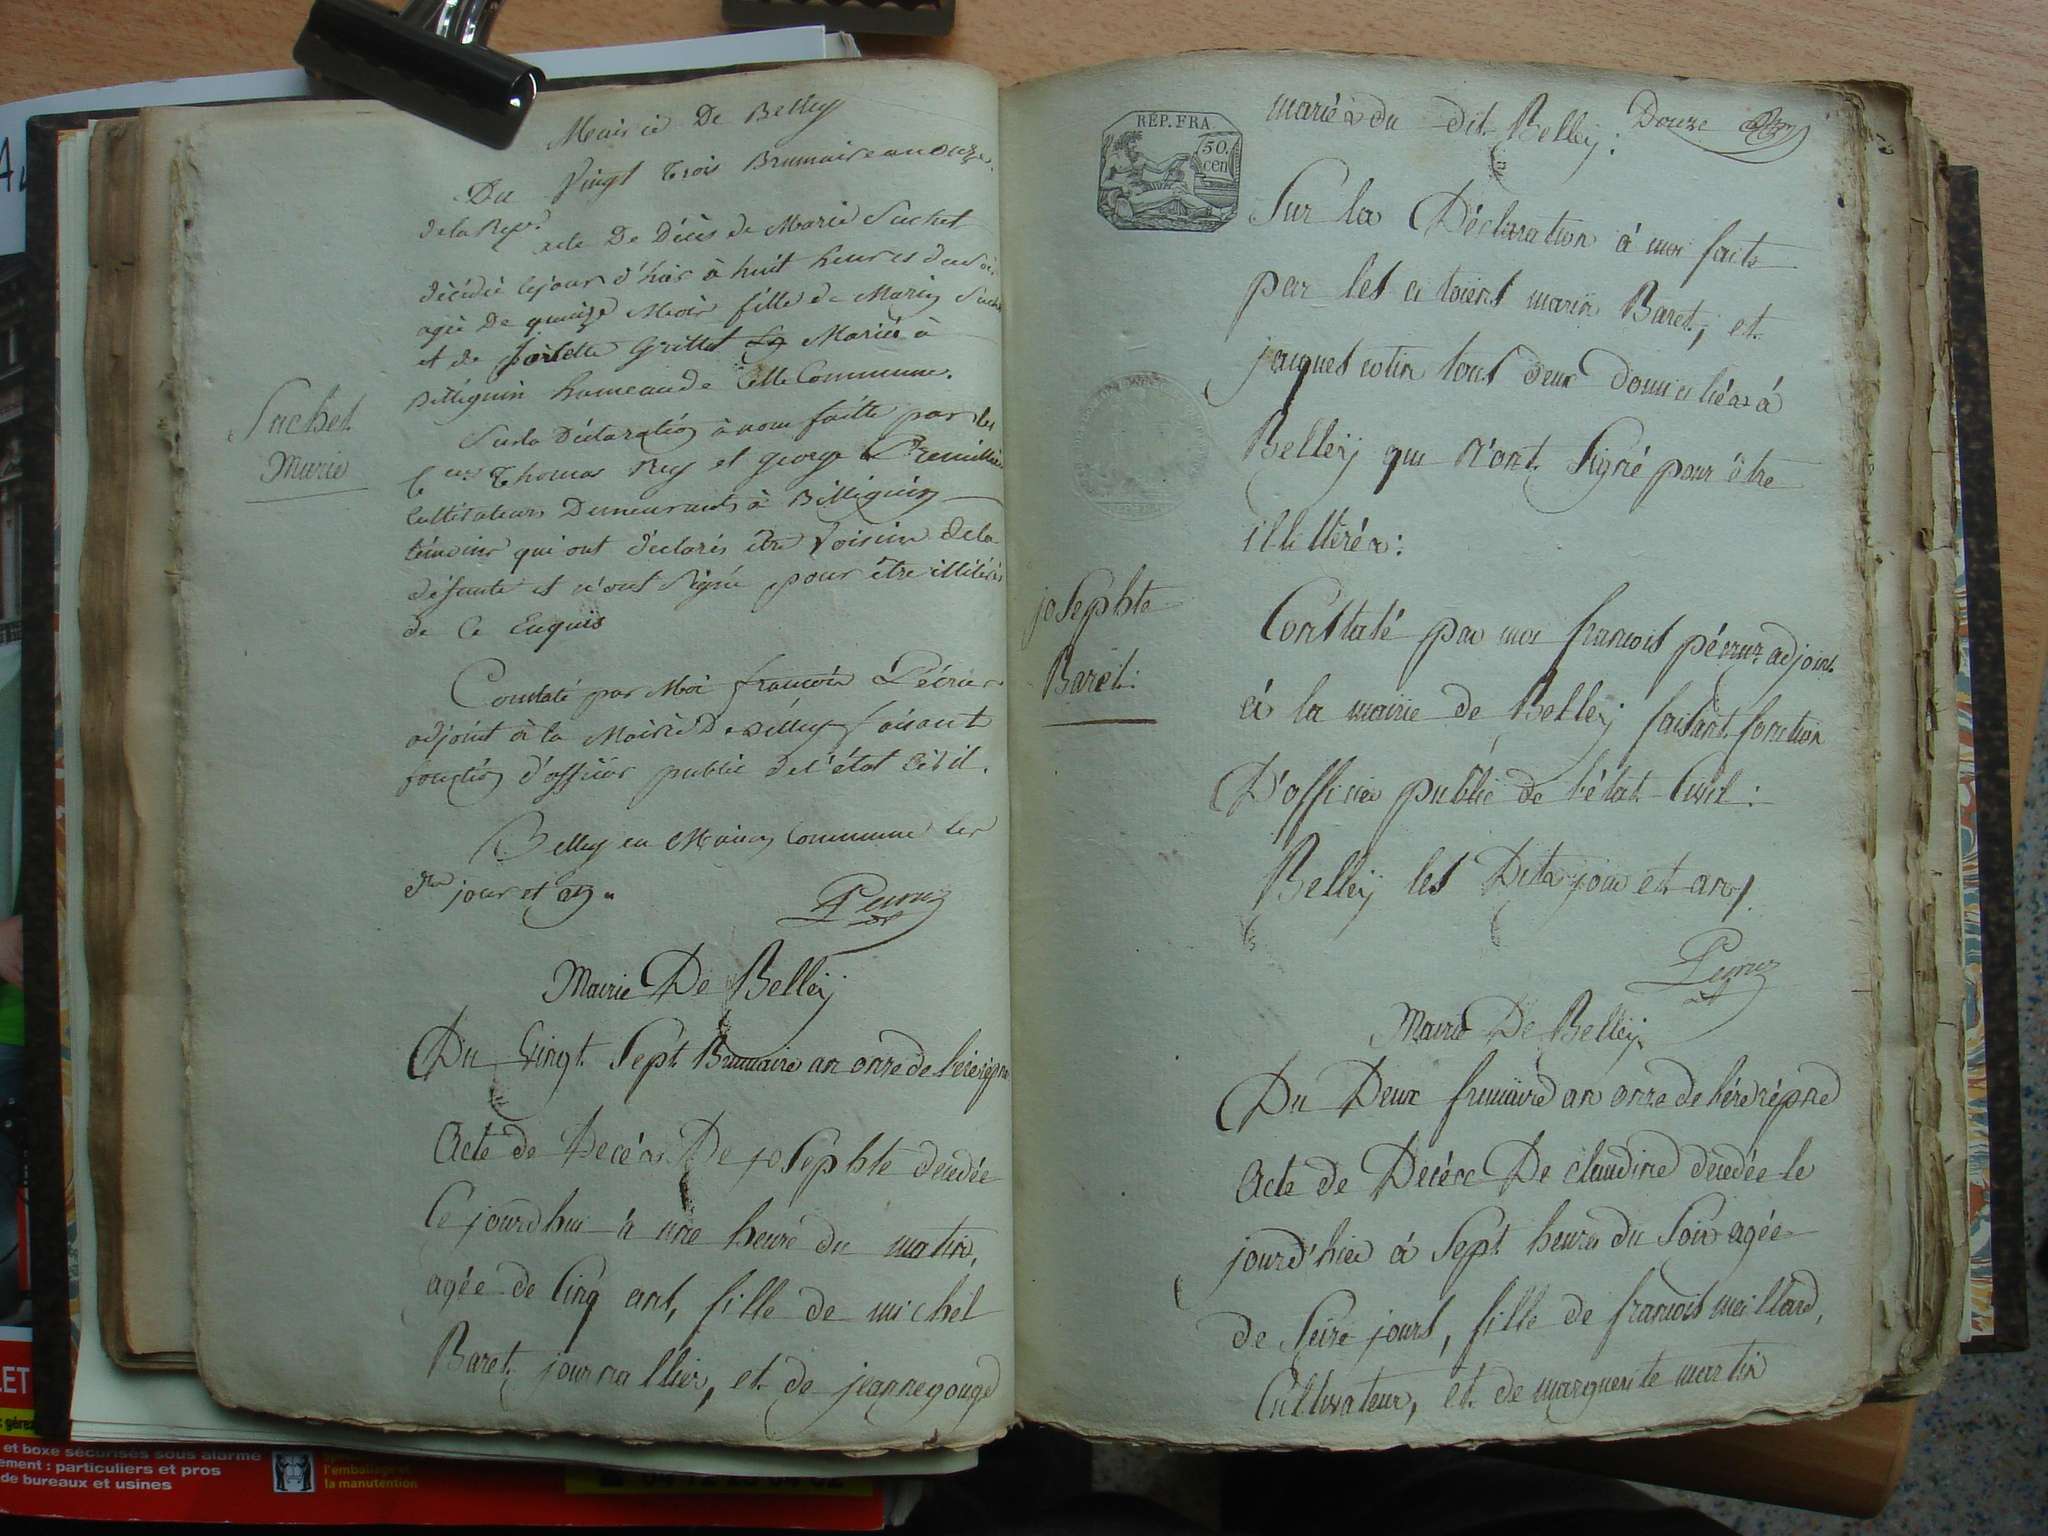 Mairie De Belley
Du Vingt Trois Brumaire an onze
de la Rep.
acte De Décès de Marie Suchet
décédée le jour d'hier à huit heures du soir
agée De quinze Mois fille de Marin Suchet
et de josette Grillet Mariés à
Billignin hameau de Cette Commune.
Suchet
Marie
Sur la Déclaration à nous faitte par les
Cens Thomas Rey et george
Cultivateurs Demeurants à Billignin
témoins qui ont déclarés être Voisins de la
défunte et n'ont Signé pour être illitérés
de Ce Enquis
Constaté par Moi françois Pévrier
adjoint à la Mairie De Belley faisant
fonction d'officier public de l'état Civil.
Belley en Maison Commune les
dits jour et an
Mairie De Belleÿ
Du Vingt Sept Brumaire an onze de l'ére répne
Acte de Decéas De joSephte decedée
Ce jourdhui à une heure du matin,
agée de Cinq ans, fille de michel
Baret journallier, et de jeanne gouge
REP. FRA
50.
cen
mariés du dit Belleÿ: Douze
Sur la Déclaration à moi faite
par les citoiens marin Baret, et
jaques cotin tous deux domiciliés à
Belleÿ qui n'ont Signé pour être
illittérés:
joSephte
Baret:
Constaté par moi francois pévrier adjoint
à la mairie de Belleÿ faisant fonction
D'officier public de l'état Civil:
Belleÿ les Dits jour et an
Mairie De Belleÿ
Du Deux frimaire an onze de l'ére répne
Acte de Decéas De claudine decedée le
jour d'hier à Sept heures du Soir agée
de Seize jours, fille de francois maillard,
Cultivateur, et de marguerite martin
LET
et boxe sécurisés sous alarme
ement : particuliers et pros
de bureaux et usines
l'emballage et
la manutention